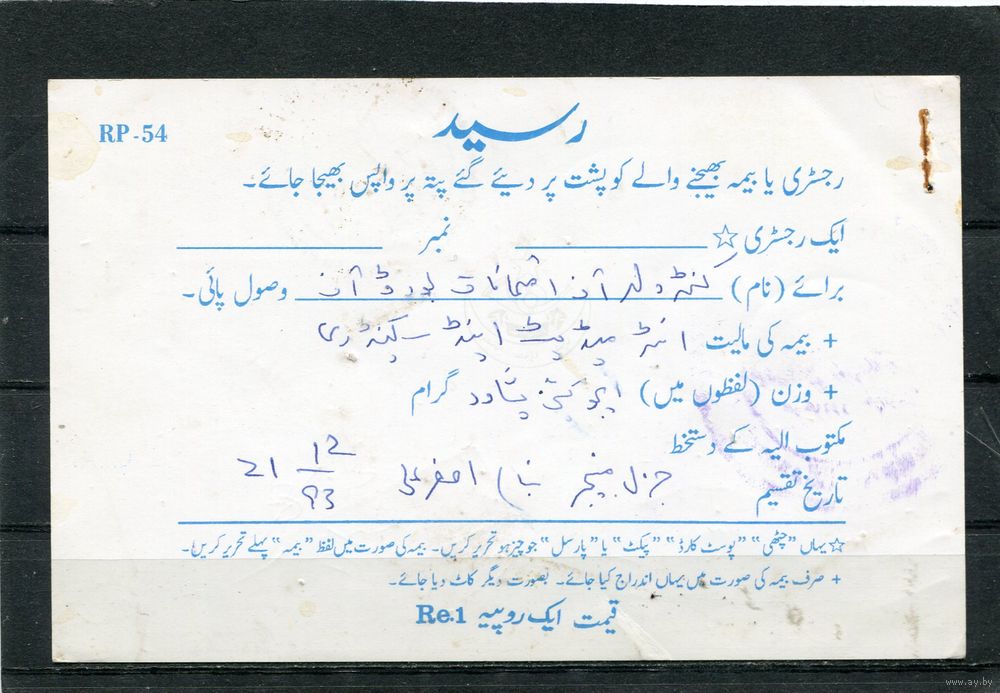 RP-54
رسید
رجسٹری یا بیمہ بھیجنے والے کو پشت پر دیئے گئے پتہ پر واپس بھیجا جائے۔
ایک رجسٹری ☆ نمبر
برائے (نام) کنٹرولر آف امتحانات بورڈ آف وصول پائی۔
+ بیمہ کی مالیت انٹرمیڈیٹ اینڈ سیکنڈری
+ وزن (لفظوں میں) ایجوکیشن پشاور گرام
مکتوب الیہ کے دستخط
تاریخ تقسیم جنرل منیجر اصغر علی 21 12/93
☆ یہاں "چٹھی" "پوسٹ کارڈ" "پیکٹ" یا "پارسل" جو چیز ہو تحریر کریں۔ بیمہ کی صورت میں لفظ "بیمہ" پہلے تحریر کریں۔
+ صرف بیمہ کی صورت میں یہاں اندراج کیا جائے۔ بصورت دیگر کاٹ دیا جائے۔
قیمت ایک روپیہ Re.1
www.ay.by